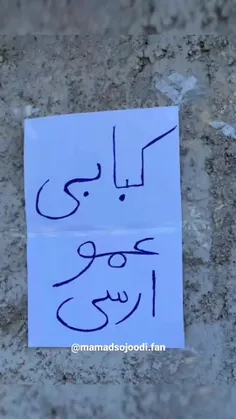 کبابی
عمو
ارسی
@mamadsojoodi.fan